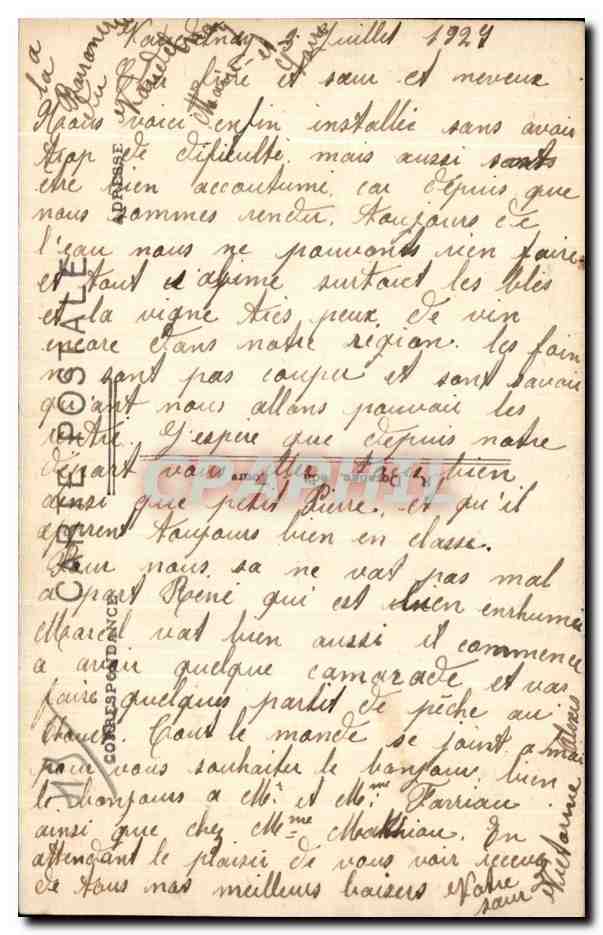 Juillet 1924
frère et sœur et neveux
Nous voici enfin installée sans avoir
trop de dificulte mais aussi
etre bien accoutumé car depuis que
nous sommes rendu. toujours de
l'eau nous ne pouvons rien faire
et tout s'abime surtout les blés
et la vigne tres peux de vin
encore dans notre région. les foin
ne sont pas couper et sont savoir
quant nous allons pouvoir les
rentré. J'espère que depuis notre
départ vous allez très bien
ainsi que petit Pierre et qu'il
apprent toujours bien en classe.
Pour nous sa ne vat pas mal
a part René qui est bien enrhumée
Marcel vat bien aussi il commence
a avoir quelque camarade et vas
faire quelques partit de pêche au
Tout le monde se joint a moi
pour vous souhaiter le bonjour, bien
le bonjours a Mr et Mme Farriau
ainsi que chez Mme En
attendant le plaisir de vous voir recever
de tous nos meilleurs baisers Votre
sœur
a la
CARTE POSTALE
CORRESPONDANCE
ADRESSE
CPAPHIL